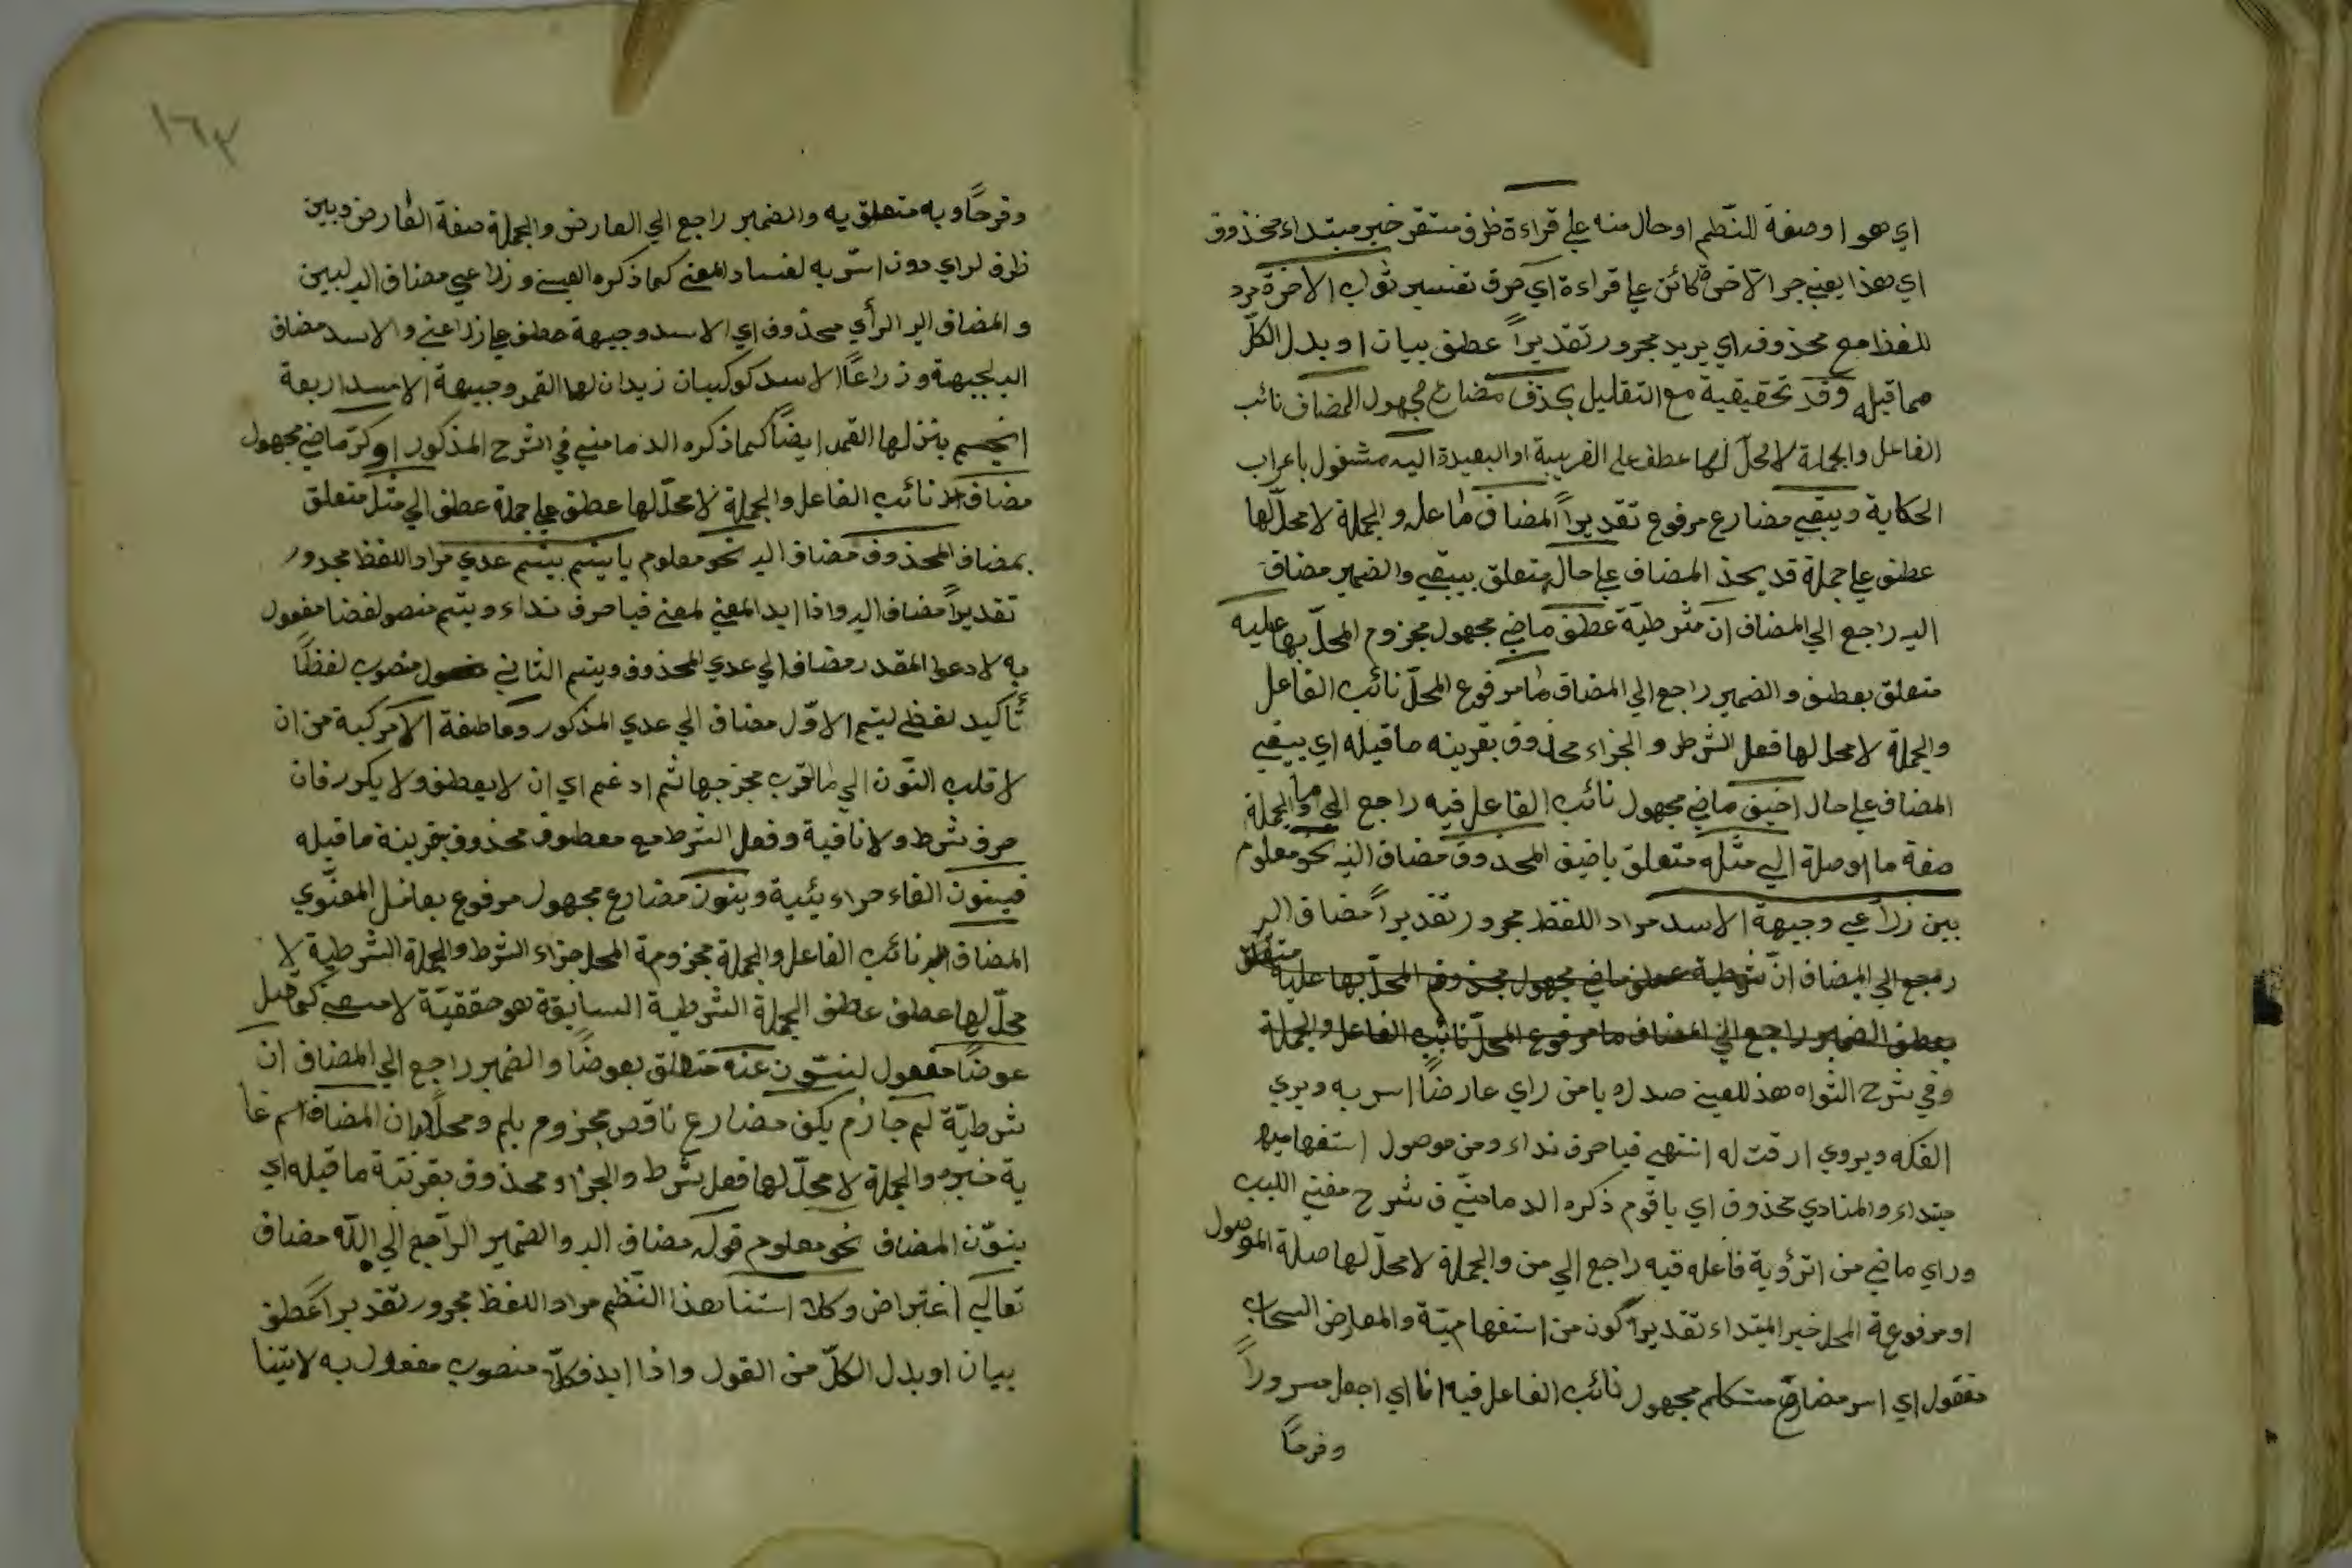 اي هو او صفة للنظم او حال منه علي قراءة ظرف مستقر خبر مبتداء محذوف
اي هذا يعني جر الآخرة كائن علي قراءة اي حرف تفسير ثواب الاخرة مرد
للفظ مع محذوف اي يريد مجرور تقديراً عطف بيان او بدل الكلّ
مما قبله وقد تحقيقية مع التقليل يحذف مضارع مجهول المضاف نائب
الفاعل والجملة لا محلّ لها عطف علي القريبة او البعيدة اليه مشغول باعراب
الحكاية ويبقي مضارع مرفوع تقديراً المضاف فاعله والجملة لا محلّ لها
عطف علي جملة قد يحذ المضاف علي حاله متعلق بيبقي والضمير مضاف
اليه راجع الي المضاف ان شرطيّة عطف ماضي مجهول مجزوم المحلّ بها عليه
متعلق بعطف والضمير راجع الي المضاف ما مرفوع المحلّ نائب الفاعل
والجملة لا محل لها فعل الشرط والجزاء محذوف بقرينه ما قبله اي يبقي
المضاف علي حال اضيف ماضي مجهول نائب الفاعل فيه راجع الي ما والجملة
صفة ما او صلة الي مثله متعلق باضيف المحذوف مضاف اليه نحو معلوم
بين ذراعي وجبهة الاسد مراد اللفظ مجرور تقديراً مضاف اليه
رجع الي المضاف ان شرطية عطف ماضي مجهول مجذوم المحلّ بها عليه متعلق
بعطف الضمير راجع الي المضاف ما مرفوع المحلّ نائب الفاعل والجملة
وفي شرح الشواه هذ للعيني صدره يا من راي عارضاً اسر به ويري
الفكه ويروي ارقت له انتهي فيا حرف نداء ومن موصول استفهاميه
مبتداء والمنادي محذوف اي يا قوم ذكره الدمامينّي في شرح مغني اللبيب
وراي ماضي من الرؤية فاعله فيه راجع الي من والجملة لا محلّ لها صلة الموصول
او مرفوعة المحل خبر المبتداء تقديراً كون من استفهاميّة والمعارض السحاب
مفعول اي اسر مضارع متكلم مجهول نائب الفاعل فيه انا اي اجعل مسروراً
وفرحاً
١٦٣
وفرحاً وبه متعلق به والضمير راجع الي العارض والجملة صفة العارض وبين
ظرف لراي دون اسرّ به لفساد المعني كما ذكره العيني وذراعي مضاف اليه لبين
والمضاف اليه الرأي محذوف اي الاسد وجبهة عطف علي ذراعي والاسد مضاف
اليه لجبهة وذراعاً الاسد كوكبان نيران لها القمر وجبهة الاسد اربعة
انجم ينزلها القمر ايضاً كما ذكره الدماميني في الشرح المذكور او كرّ ماضي مجهول
مضاف اليه نائب الفاعل والجملة لا محلّ لها عطف علي جملة عطف الي مثل متعلق
بمضاف المحذوف مضاف اليه نحو معلوم يا تيتم تيتم عدي مراد اللفظ مجرور
تقديراً مضاف اليه واذا ايد المعني لمعني فيا حرف نداء وتيتم منصو لفضا مفعول
به لادعوا المقدر مضاف الي عدي المحذوف وتيتم الثاني منصوب لفظاً
تأكيد لفظي ليتم الاوّل مضاف الي عدي المذكور وعاطفة الا مركبة من ان
لا قلب النّون الي ما قرب مخرجها ثم ادغم اي ان لا يعطف ولا يكرر فان
حرف شرط ولا نافية وفعل الشرط مع معطوف محذوف بقرينة ما قبله
فينون الفاء جراءيئية وينون مضارع مجهول مرفوع بعامل المعنّوي
المضاف اليه نائب الفاعل والجملة مجزومة المحل جزاء الشرط والجملة الشرطية لا
محلّ لها عطف عطف الجملة الشرطية السابقة هو حققيّة لا منعي كما قيل
عوضاً مفعول لينون عنه متعلق بعوضاً والضمير راجع الي المضاف ان
شرطيّة لم جازم يكن مضارع ناقص مجزوم بلم ومحلاً بان المضاف اسم غا
ية خبره والجملة لا محلّ لها فعل شرط والجزاء محذوف بقرنتة ما قبله اي
ينوّن المضاف نحو معلوم قوله مضاف اليه والضمير الراجع الي الله مضاف
تعالي اعتراض وكلا استنا هذا النظم مراد اللفظ مجرور تقديراً عطف
بيان او بدل الكلّ من القول واذا ايد فكلاّ منصوب مفعول به لاتينا